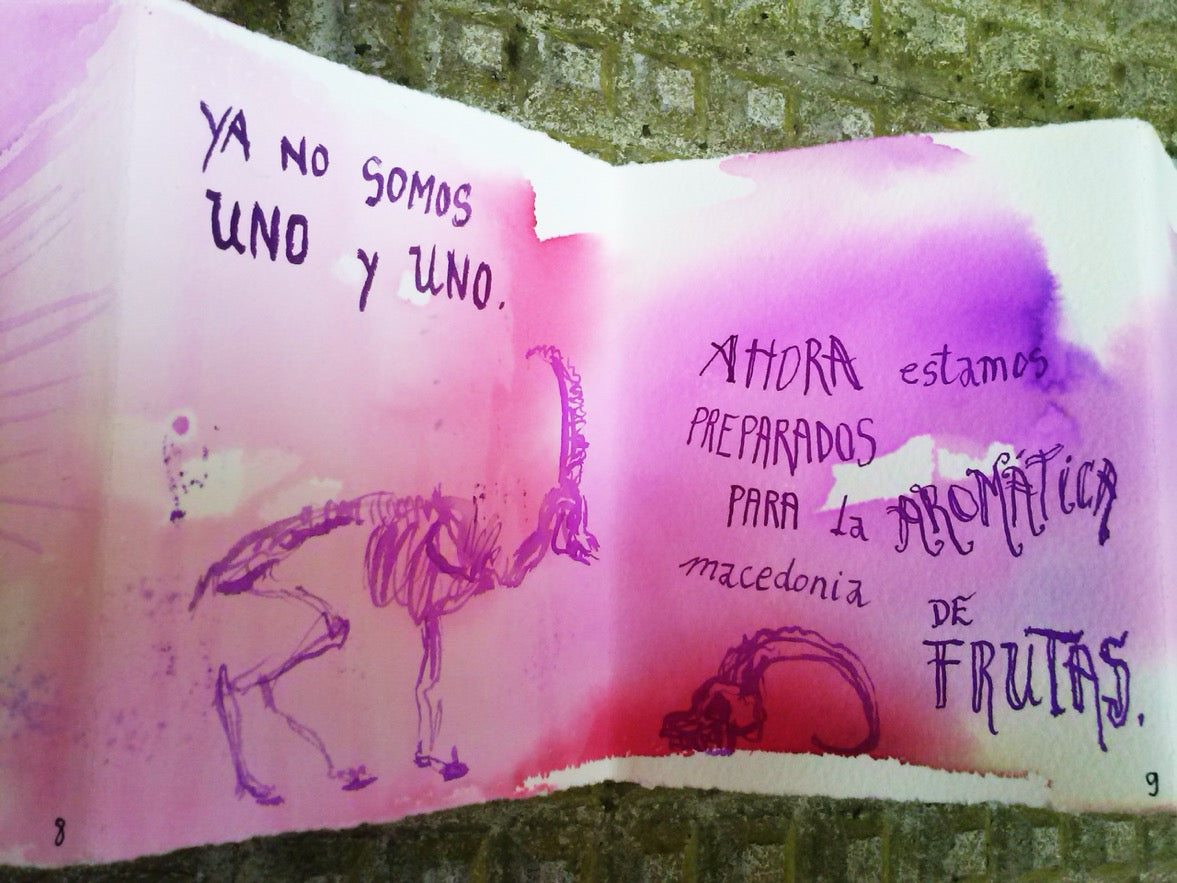 YA NO SOMOS
UNO y UNO.
8
AHORA estamos
PREPARADOS
PARA la AROMÁTiCA
macedonia
DE
FRUTAS.
9